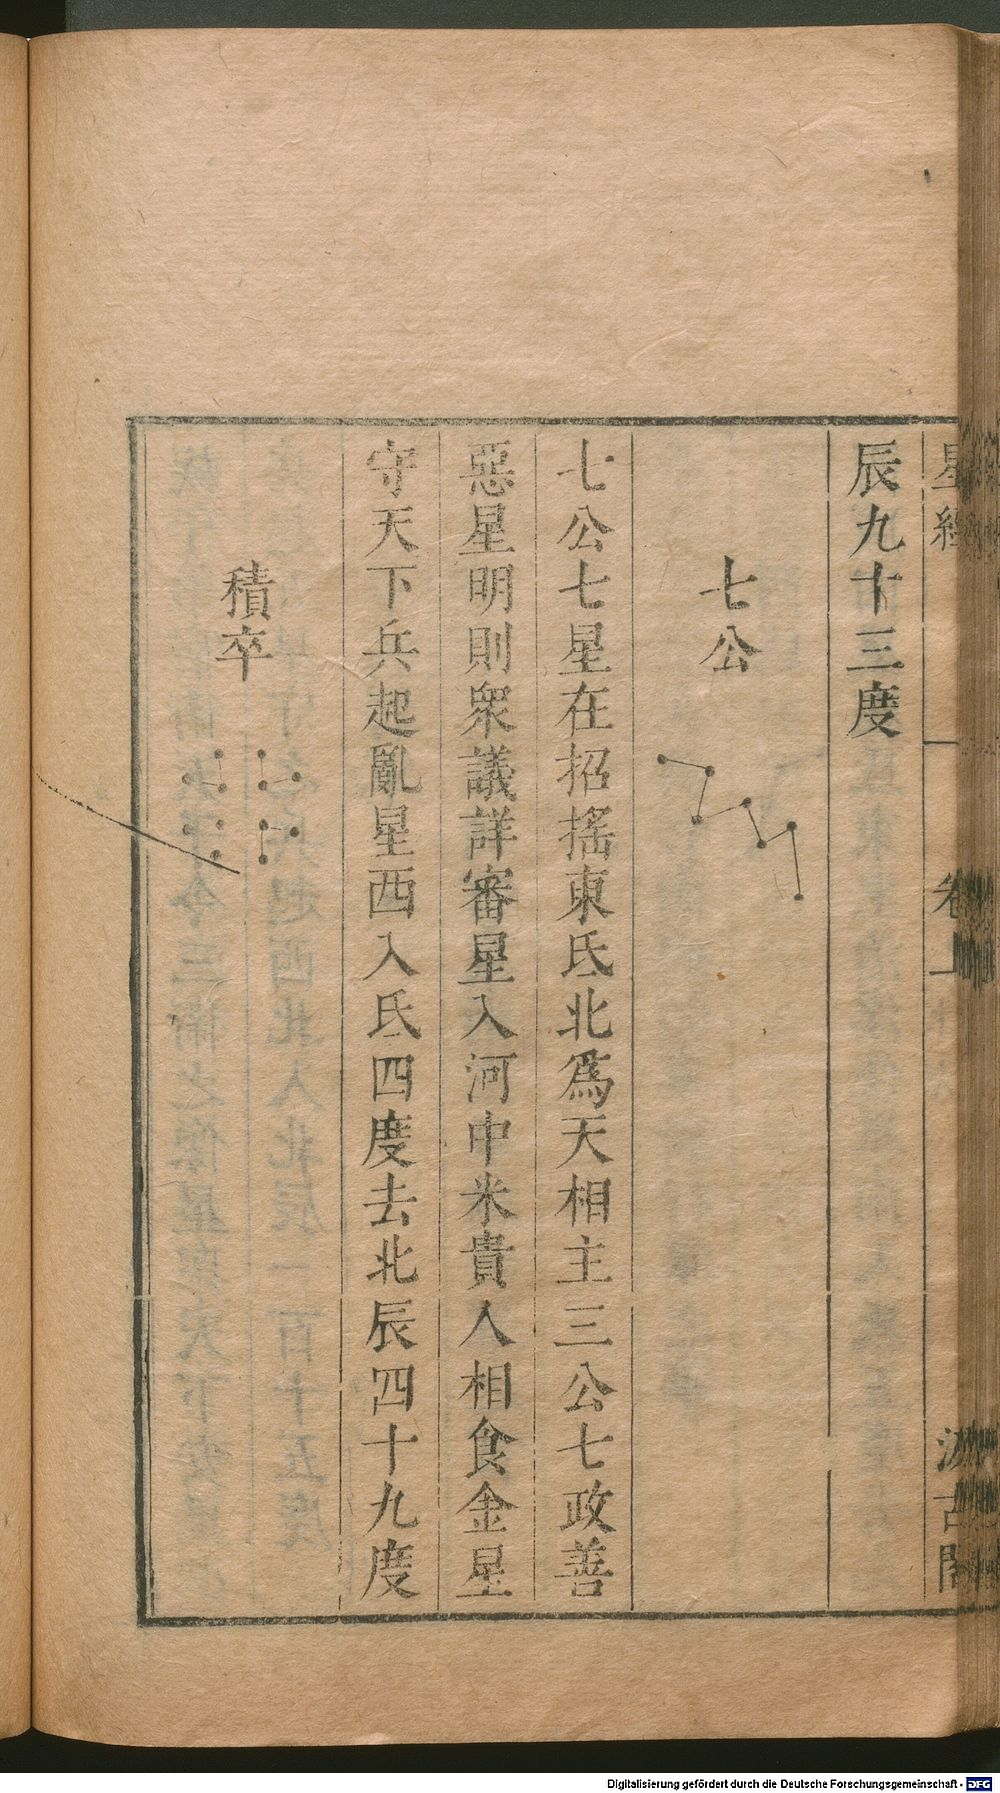 星經
卷上
汲古閣
辰九十三度
七公
七公七星在招搖東氐北爲天相主三公七政善
惡星明則衆議詳審星入河中米貴人相食金星
守天下兵起亂星西入氐四度去北辰四十九度
積卒
Digitalisierung gefördert durch die Deutsche Forschungsgemeinschaft - DFG